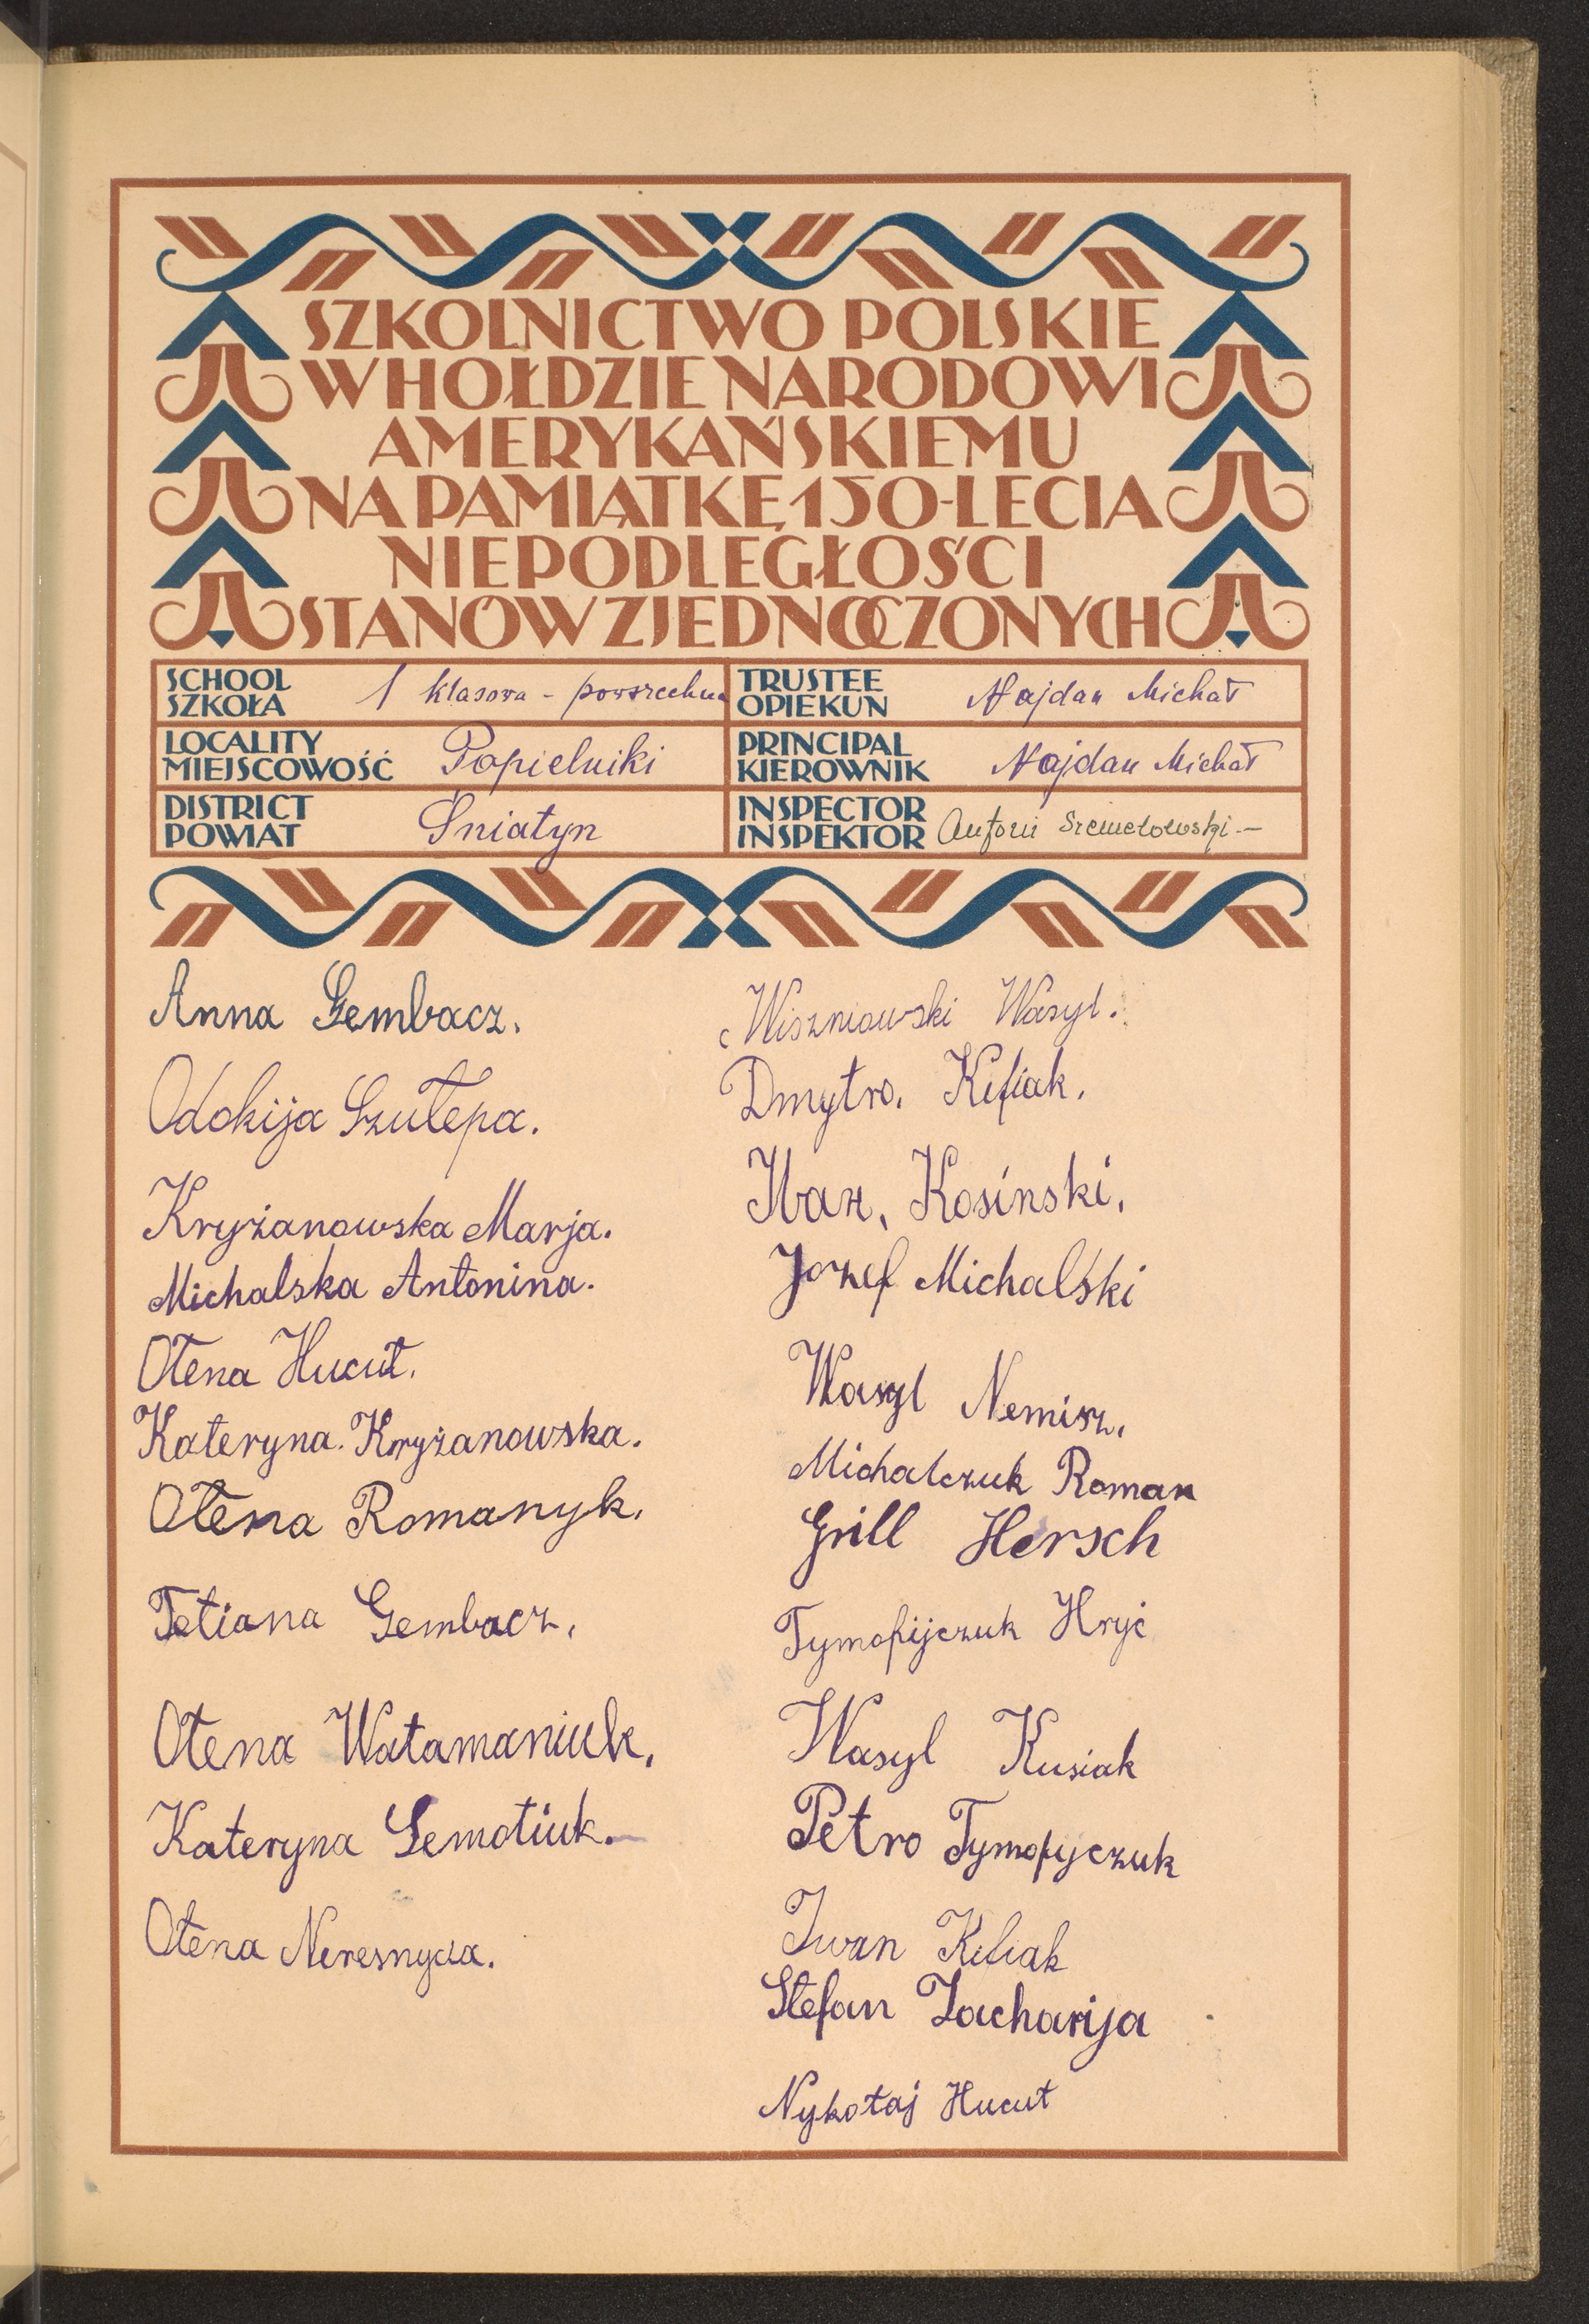 SZKOLNICTWO POLSKIE
W HOŁDZIE NARODOWI
AMERYKAŃSKIEMU
NA PAMIĄTKĘ 150-LECIA
NIEPODLEGŁOŚCI
STANÓW ZJEDNOCZONYCH
SCHOOL
SZKOŁA
1 klasowa - powszechna
TRUSTEE
OPIEKUN
Najdan Michał
LOCALITY
MIEJSCOWOŚĆ
Popielniki
PRINCIPAL
KIEROWNIK
Najdan Michał
DISTRICT
POWIAT
Śniatyn
INSPECTOR
INSPEKTOR
Antoni Szemelowski -
Anna Gembacz.
Odokija Szułepa.
Kryżanowska Marja.
Michalska Antonina.
Ołena Hucuł.
Kateryna. Kryżanowska.
Ołena Romanyk.
Tetiana Gembacz.
Ołena Watamaniuk.
Kateryna Semotiuk.
Ołena Neresnycia.
Wiszniowski Wasyl.
Dmytro. Kifiak.
Iwan. Kosinski.
Jozef Michalski
Wasyl Nemisz.
Michalczuk Roman
Grill Hersch
Tymofijczuk Hryć
Wasyl Kusiak
Petro Tymofyjczuk
Iwan Kifiak
Stefan Zacharija
Nykołaj Hucuł